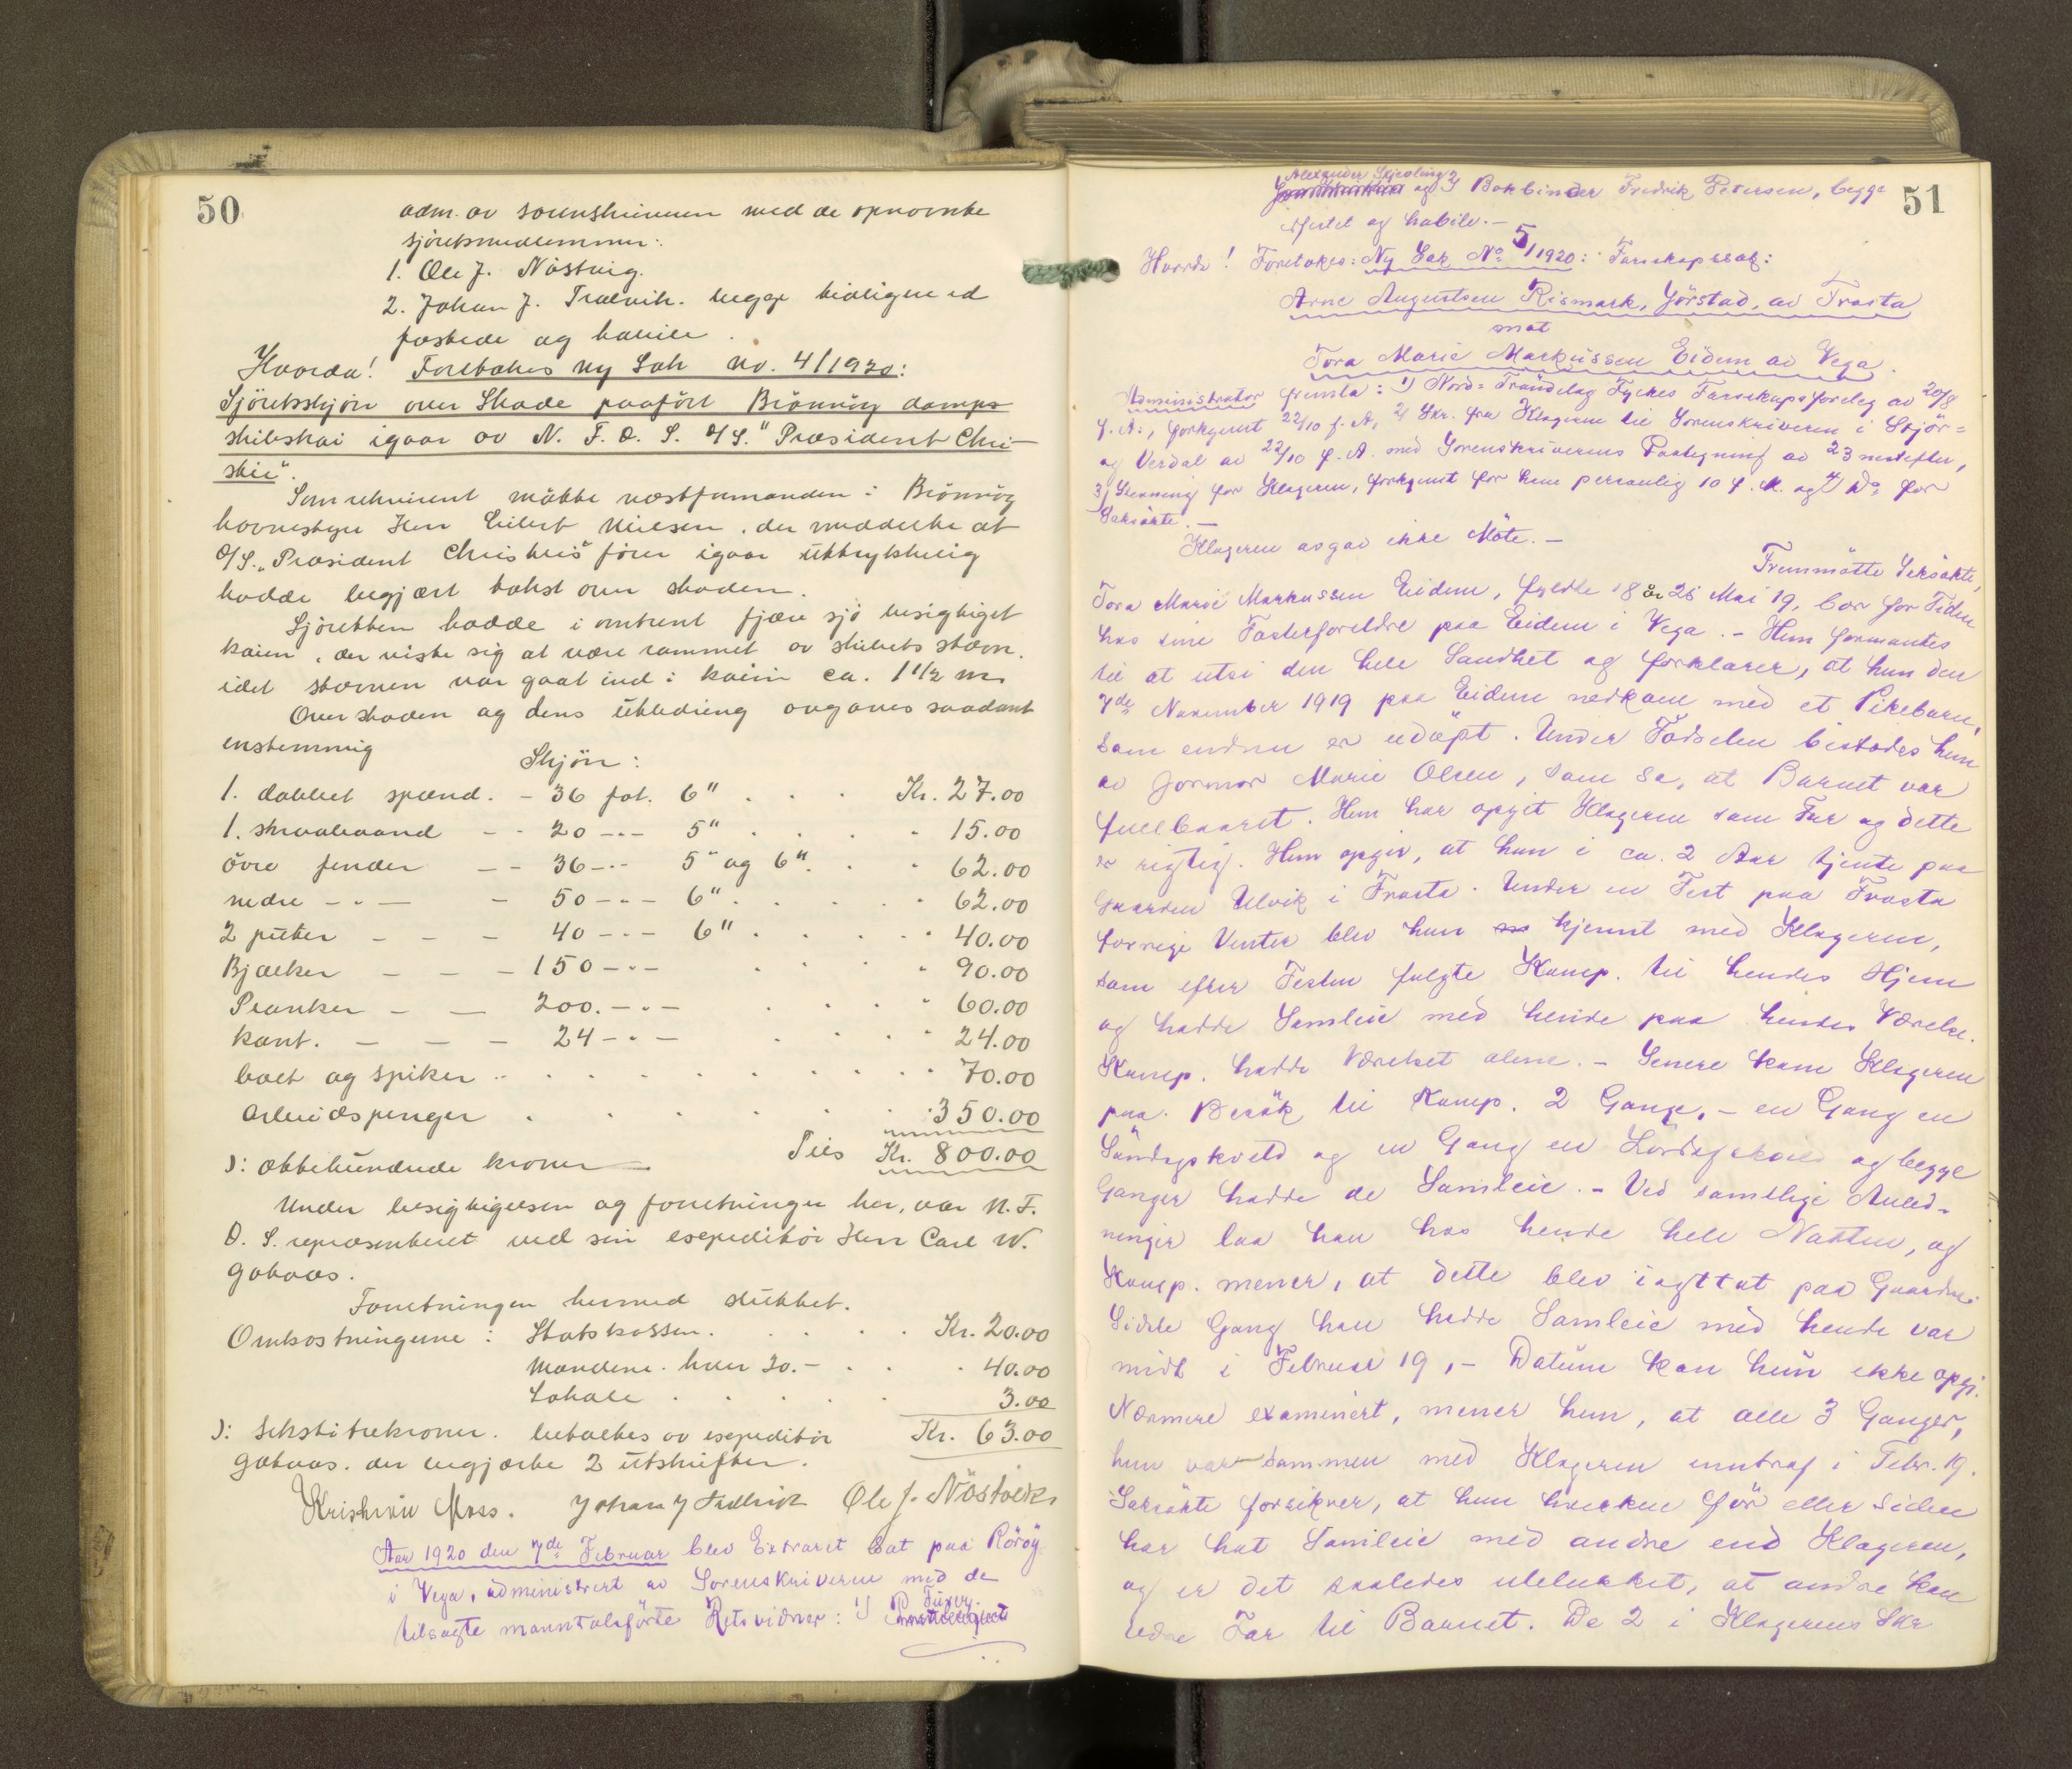 50
adm. av sorenskriveren med de opnævnte
sjöretsmedlemmer:
1. Ole J. Nöstvig.
2. Johan J. Trælvik. begge tidligere ed
fæstede og habile.
Hvorda! Foretokes ny Sak no. 4/1920:
Sjöretsskjön over Skade paaført Brönnöy damps
skibskai igaar av N. F. D. S. D/S. "Præsident Chri-
stie".
Som rekvirent mötte næstformanden i Brönnöy
havnestyre Herr Eilert Nielsen, der meddelte at
D/S. "President Christies" förer igaar uttrykkelig
hadde begjært takst over skaden.
Sjöretten hadde i omtrent fjære sjö besigtiget
kaien, der viste sig at være rammet av skibets stævn.
idet stævnen var gaat ind i kaien ca. 1 1/2 m.
Over skaden og dens utbedring avgaves saadant
enstemmig
Skjön:
1. dobbel spænd. - 36 fot. 6" . . . Kr. 27.00
1. skraabaand - - 20 -"- 5" . . . . " 15.00
övre fender - - 36 -"- 5" og 6". . " 62.00
nedre -"- - 50 -"- 6" . . . . " 62.00
2 puter - - - 40 -"- 6" . . . . " 40.00
Bjælker - - - 150 -"- . . . . " 90.00
Planker - - 200. -"- . . . " 60.00
kant. - - - 24 -"- . . . " 24.00
bolt og spiker . . . . . . . . . " 70.00
Arbeidspenger . . . . . . . " 350.00
Tils Kr. 800.00
): ottehundrede kroner
Under besigtigelsen og forretningen her, var N. F.
D. S. repræsenteret ved sin expeditör Herr Carl W.
Gabaas.
Forretningen hermed sluttet.
Omkostningerne: Statskassen. . . . . Kr. 20.00
Mændene. hver 20.- . . . 40.00
Lokale . . . . . 3.00
): Sekstitrekroner. betaltes av expeditör Kr. 63.00
Gabaas. der begjærte 2 utskrifter.
Kristian Moss. Johan J Trælvik Ole J. Nöstvik
Aar 1920 den 7de Februar blev Extraret sat paa Rörøy
i Vega, administrert av Sorenskriveren med de
tilsagte manntalsförte Retsvidner: 1)
51
Alexander
og 2) Bokbinder Fredrik Petersen, begge
edfestet og habile.-
Hvorda! Foretokes: Ny Sak No 5/1920: Farskapssak:
Arne Augustsen Rismark, Hörstad, av Frosta
mot
Tora Marie Markussen Eidem av Vega.
Administrator fremla: 1) Nord-Tröndelag Fylkes Farskapsforelæg av 20/8
f. A., forkynt 22/10 f. A, 2) Skr. fra Klageren til Sorenskriveren i Stjör-
og Verdal av 22/10 f. A. med Sorenskriverens Paategning av 23 nestefter,
3) Stevning for Klageren, forkynt for ham personlig 10 f. M. og 4) Do for
Saksökte.-
Klageren avgav ikke Möte.-
Fremmötte Saksökte,
Tora Marie Markussen Eidem, fyldte 18 år 25 Mai 19, bor for Tiden
hos sine Fosterforeldre paa Eidem i Vega.- Hun formantes
til at utsi den hele Sandhet og forklarer, at hun den
7de November 1919 paa Eidem nedkom med et Pikebarn,
som endnu er udöpt. Under Fødselen bistodes hun
av Jormor Marie Olsen, som sa, at Barnet var
fuldbaaret. Hun har opgit Klageren som Far og dette
er rigtig. Hun opgir, at hun i ca. 2 Aar tjente paa
Gaarden Ulvik i Frosta. Under en Fest paa Frosta
forrige Vinter blev hun kjennt med Klageren,
som efter Festen fulgte Komp. til hendes Hjem
og hadde Samleie med hende paa hendes Værelse.
Komp. hadde Værelset alene.- Senere kom Klageren
paa Besök til Komp. 2 Gange,- en Gang en
Söndagskveld og en Gang en Lördagskveld og begge
Ganger hadde de Samleie.- Ved samtlige Anled-
ninger laa han hos hende hele Natten, og
Komp. mener, at dette blev iagttat paa Gaarden.
Sidste Gang han hadde Samleie med hende var
midt i Februar 19,- Datum kan hun ikke opgi.
Nærmere examinert, mener hun, at alle 3 Ganger,
hun var sammen med Klageren inntraf i Febr. 19.
Saksökte forsikrer, at hun hverken för eller siden
har hat Samleie med andre end Klageren,
og er det saaledes utelukket, at andre kan
være Far til Barnet. De 2 i Klagerens Skr